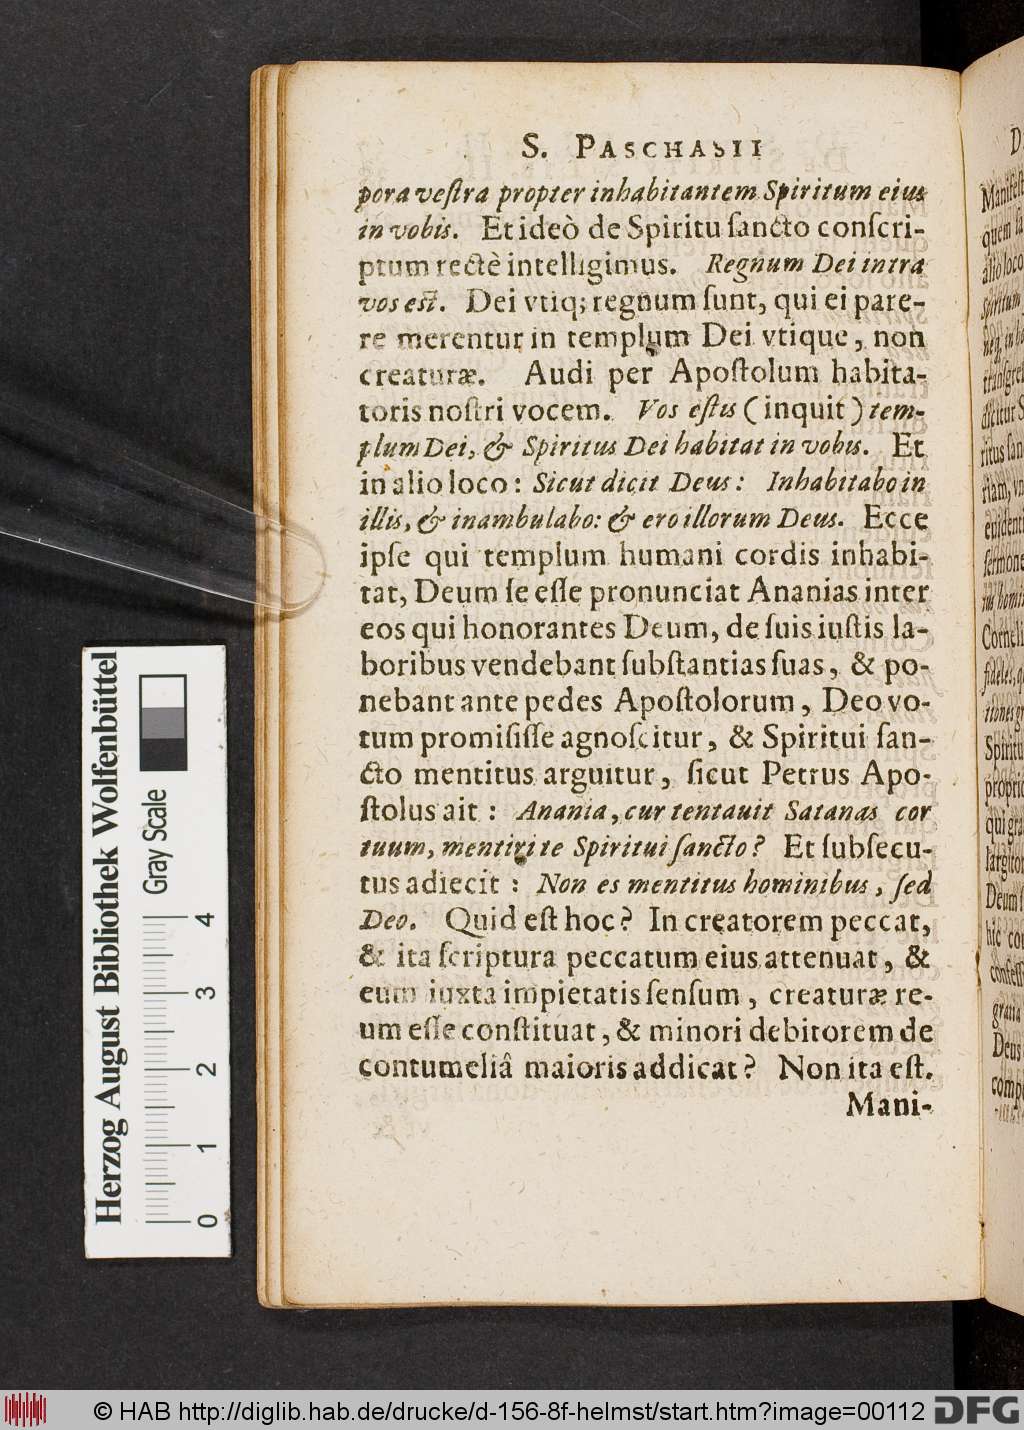 S. PASCHASII
pora veſtra propter inhabitantem Spiritum eius
in vobis. Et ideò de Spiritu ſancto conſcri-
ptum rectè intelligimus. Regnum Dei intra
vos est. Dei vtiq; regnum ſunt, qui ei pare-
re merentur in templum Dei vtique, non
creaturæ. Audi per Apoſtolum habita-
toris noſtri vocem. Vos eſtis (inquit) tem-
plum Dei, & Spiritus Dei habitat in vobis. Et
in alio loco: Sicut dicit Deus: Inhabitabo in
illis, & inambulabo: & ero illorum Deus. Ecce
ipſe qui templum humani cordis inhabi-
tat, Deum ſe eſſe pronunciat Ananias inter
eos qui honorantes Deum, de ſuis iuſtis la-
boribus vendebant ſubſtantias ſuas, & po-
nebant ante pedes Apoſtolorum, Deo vo-
tum promiſiſſe agnoſcitur, & Spiritui ſan-
cto mentitus arguitur, ſicut Petrus Apo-
ſtolus ait: Anania, cur tentauit Satanas cor
tuum, mentiri te Spiritui ſancto? Et ſubſecu-
tus adiecit: Non es mentitus hominibus, ſed
Deo. Quid eſt hoc? In creatorem peccat,
& ita ſcriptura peccatum eius attenuat, &
eum iuxta impietatis ſenſum, creaturæ re-
um eſſe conſtituat, & minori debitorem de
contumeliâ maioris addicat? Non ita eſt.
Mani-
Herzog August Bibliothek Wolfenbüttel
Gray Scale
0 1 2 3 4
© HAB http://diglib.hab.de/drucke/d-156-8f-helmst/start.htm?image=00112
DFG